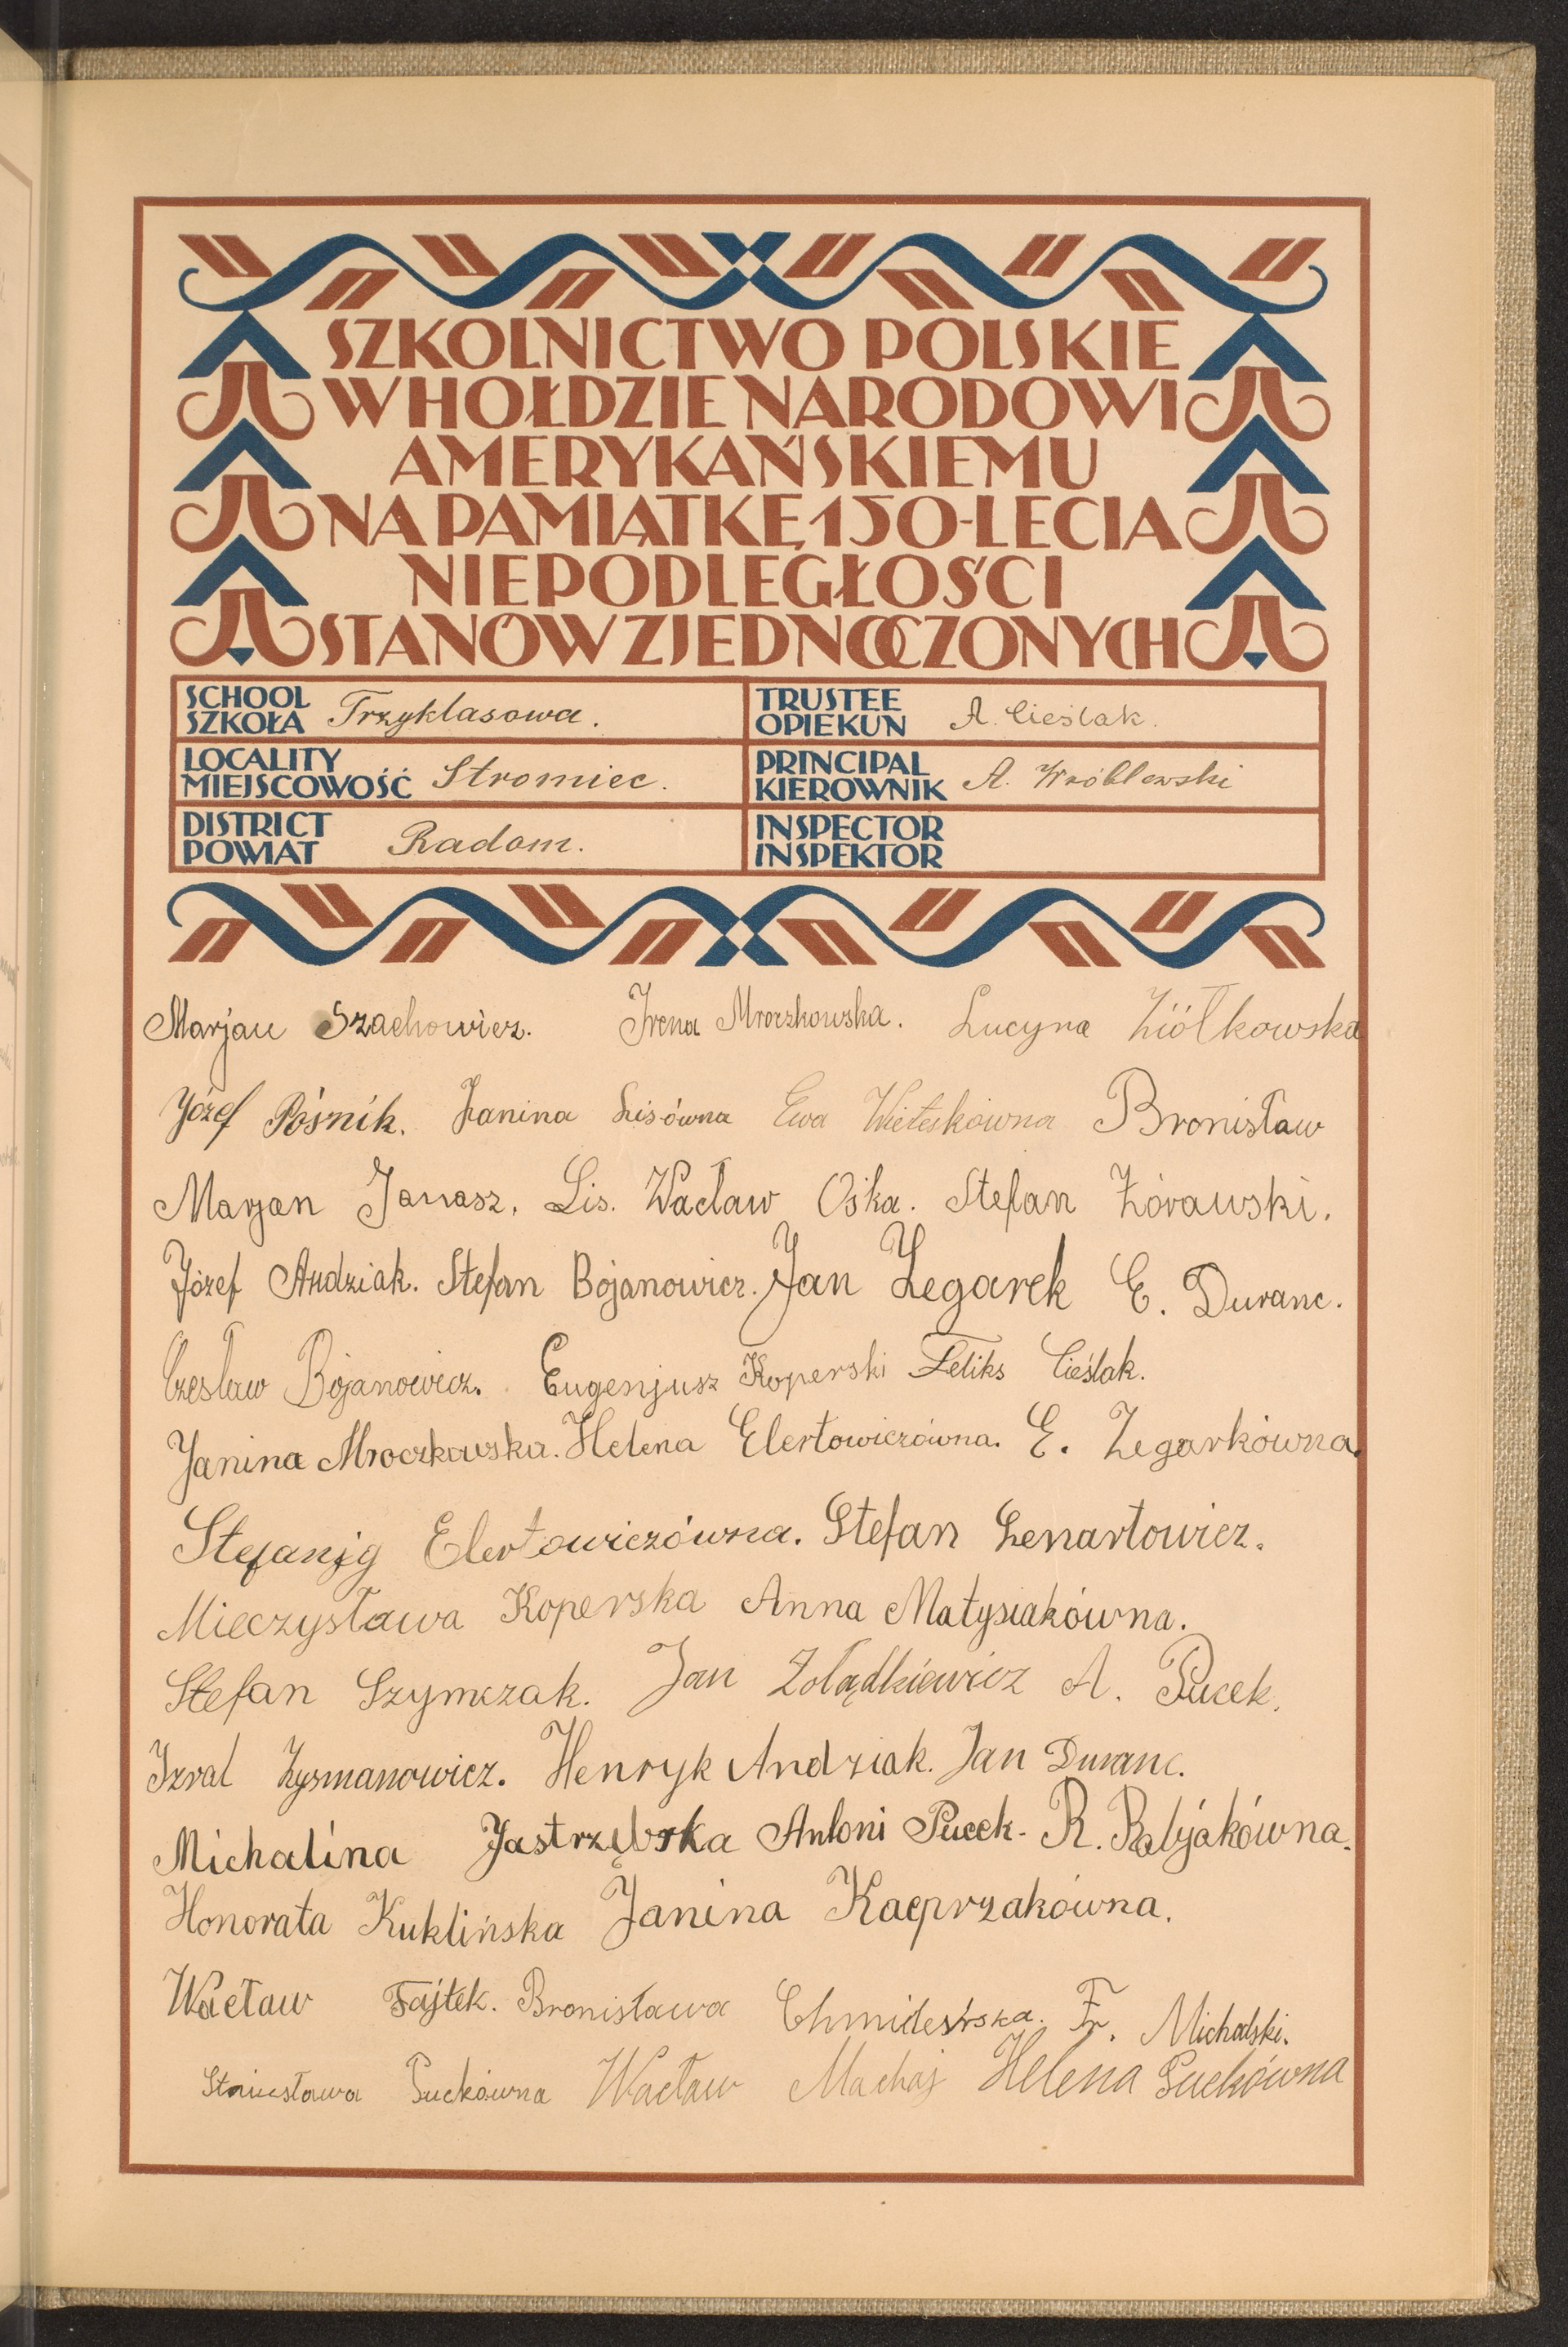 SZKOLNICTWO POLSKIE
W HOŁDZIE NARODOWI
AMERYKAŃSKIEMU
NA PAMIĄTKĘ 150-LECIA
NIEPODLEGŁOŚCI
STANÓW ZJEDNOCZONYCH
SCHOOL
SZKOŁA Trzyklasowa.
TRUSTEE
OPIEKUN A. Cieślak.
LOCALITY
MIEJSCOWOŚĆ Stromiec.
PRINCIPAL
KIEROWNIK A. Wróblewski
DISTRICT
POWIAT Radom.
INSPECTOR
INSPEKTOR
Marjan Szachowicz. Irena Mroczkowska. Lucyna Ziółkowska
Józef Pośnik. Janina Lisówna Ewa Wieteskówna Bronisław
Marjan Janasz. Lis. Wacław Ośka. Stefan Żórawski.
Józef Andziak. Stefan Bojanowicz. Jan Zegarek E. Duranc.
Czesław Bojanowicz. Eugenjusz Koperski Feliks Cieślak.
Janina Mroczkowska. Helena Elertowiczówna. E. Zegarkówna.
Stefanja Elertowiczówna. Stefan Lenartowicz.
Mieczysława Koperska Anna Matysiakówna.
Stefan Szymczak. Jan Żołądkiewicz A. Pucek.
Izral Zysmanowicz. Henryk Andziak. Jan Duranc.
Michalina Jastrzębska Antoni Pucek. R. Rabjakówna.
Honorata Kuklińska Janina Kacprzakówna.
Wacław Fajtek. Bronisława Fr. Michalski.
Stanisława Puckówna Wacław Machaj Helena Puckówna